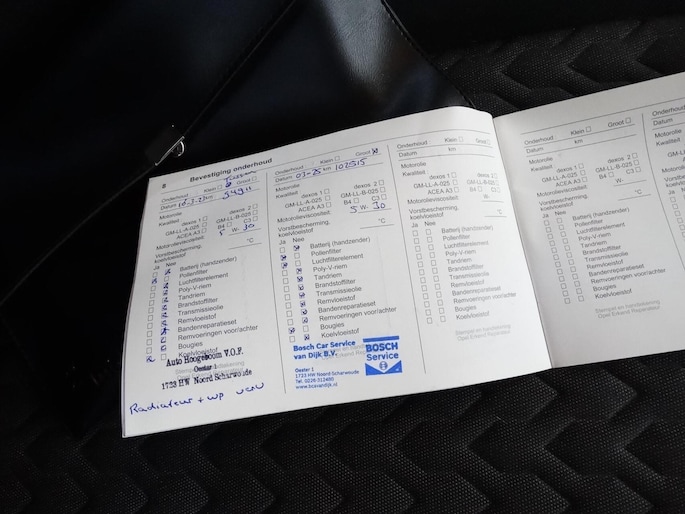 8 Bevestiging onderhoud
Onderhoud Klein Groot
Tussen
Datum km
Motorolie
Kwaliteit dexos 1 dexos 2
GM-LL-A-025 GM-LL-B-025
ACEA A3 B4 C3
Motorolieviscositeit: 5 W- 30
Vorstbescherming, koelvloeistof °C
Ja Nee
Batterij (handzender)
Pollenfilter
Luchtfilterelement
Poly-V-riem
Tandriem
Brandstoffilter
Transmissieolie
Remvloeistof
Bandenreparatieset
Remvoeringen voor/achter
Bougies
Koelvloeistof
Auto Hoogeboom V.O.F.
Oester 1
1723 HW Noord Scharwoude
Radiateur + wp
Onderhoud Klein Groot
Datum 03-25 km 102515
Motorolie
Kwaliteit dexos 1 dexos 2
GM-LL-A-025 GM-LL-B-025
ACEA A3 B4 C3
Motorolieviscositeit: 5 W- 30
Vorstbescherming, koelvloeistof °C
Ja Nee
Batterij (handzender)
Pollenfilter
Luchtfilterelement
Poly-V-riem
Tandriem
Brandstoffilter
Transmissieolie
Remvloeistof
Bandenreparatieset
Remvoeringen voor/achter
Bougies
Koelvloeistof
Bosch Car Service
van Dijk B.V.
Oester 1
1723 HW Noord Scharwoude
Tel. 0226-312480
www.bcsvandijk.nl
BOSCH
Service
Onderhoud Klein Groot
Datum km
Motorolie
Kwaliteit dexos 1 dexos 2
GM-LL-A-025 GM-LL-B-025
ACEA A3 B4 C3
Motorolieviscositeit: W-
Vorstbescherming, koelvloeistof °C
Ja Nee
Batterij (handzender)
Pollenfilter
Luchtfilterelement
Poly-V-riem
Tandriem
Brandstoffilter
Transmissieolie
Remvloeistof
Bandenreparatieset
Remvoeringen voor/achter
Bougies
Koelvloeistof
Stempel en handtekening
Opel Erkend Reparateur
Onderhoud Klein Groot
Datum km
Motorolie
Kwaliteit dexos 1 dexos 2
GM-LL-A-025 GM-LL-B-025
ACEA A3 B4 C3
Motorolieviscositeit: W-
Vorstbescherming, koelvloeistof °C
Ja Nee
Batterij (handzender)
Pollenfilter
Luchtfilterelement
Poly-V-riem
Tandriem
Brandstoffilter
Transmissieolie
Remvloeistof
Bandenreparatieset
Remvoeringen voor/achter
Bougies
Koelvloeistof
Stempel en handtekening
Opel Erkend Reparateur
Onderhoud
Datum
Motorolie
Kwaliteit